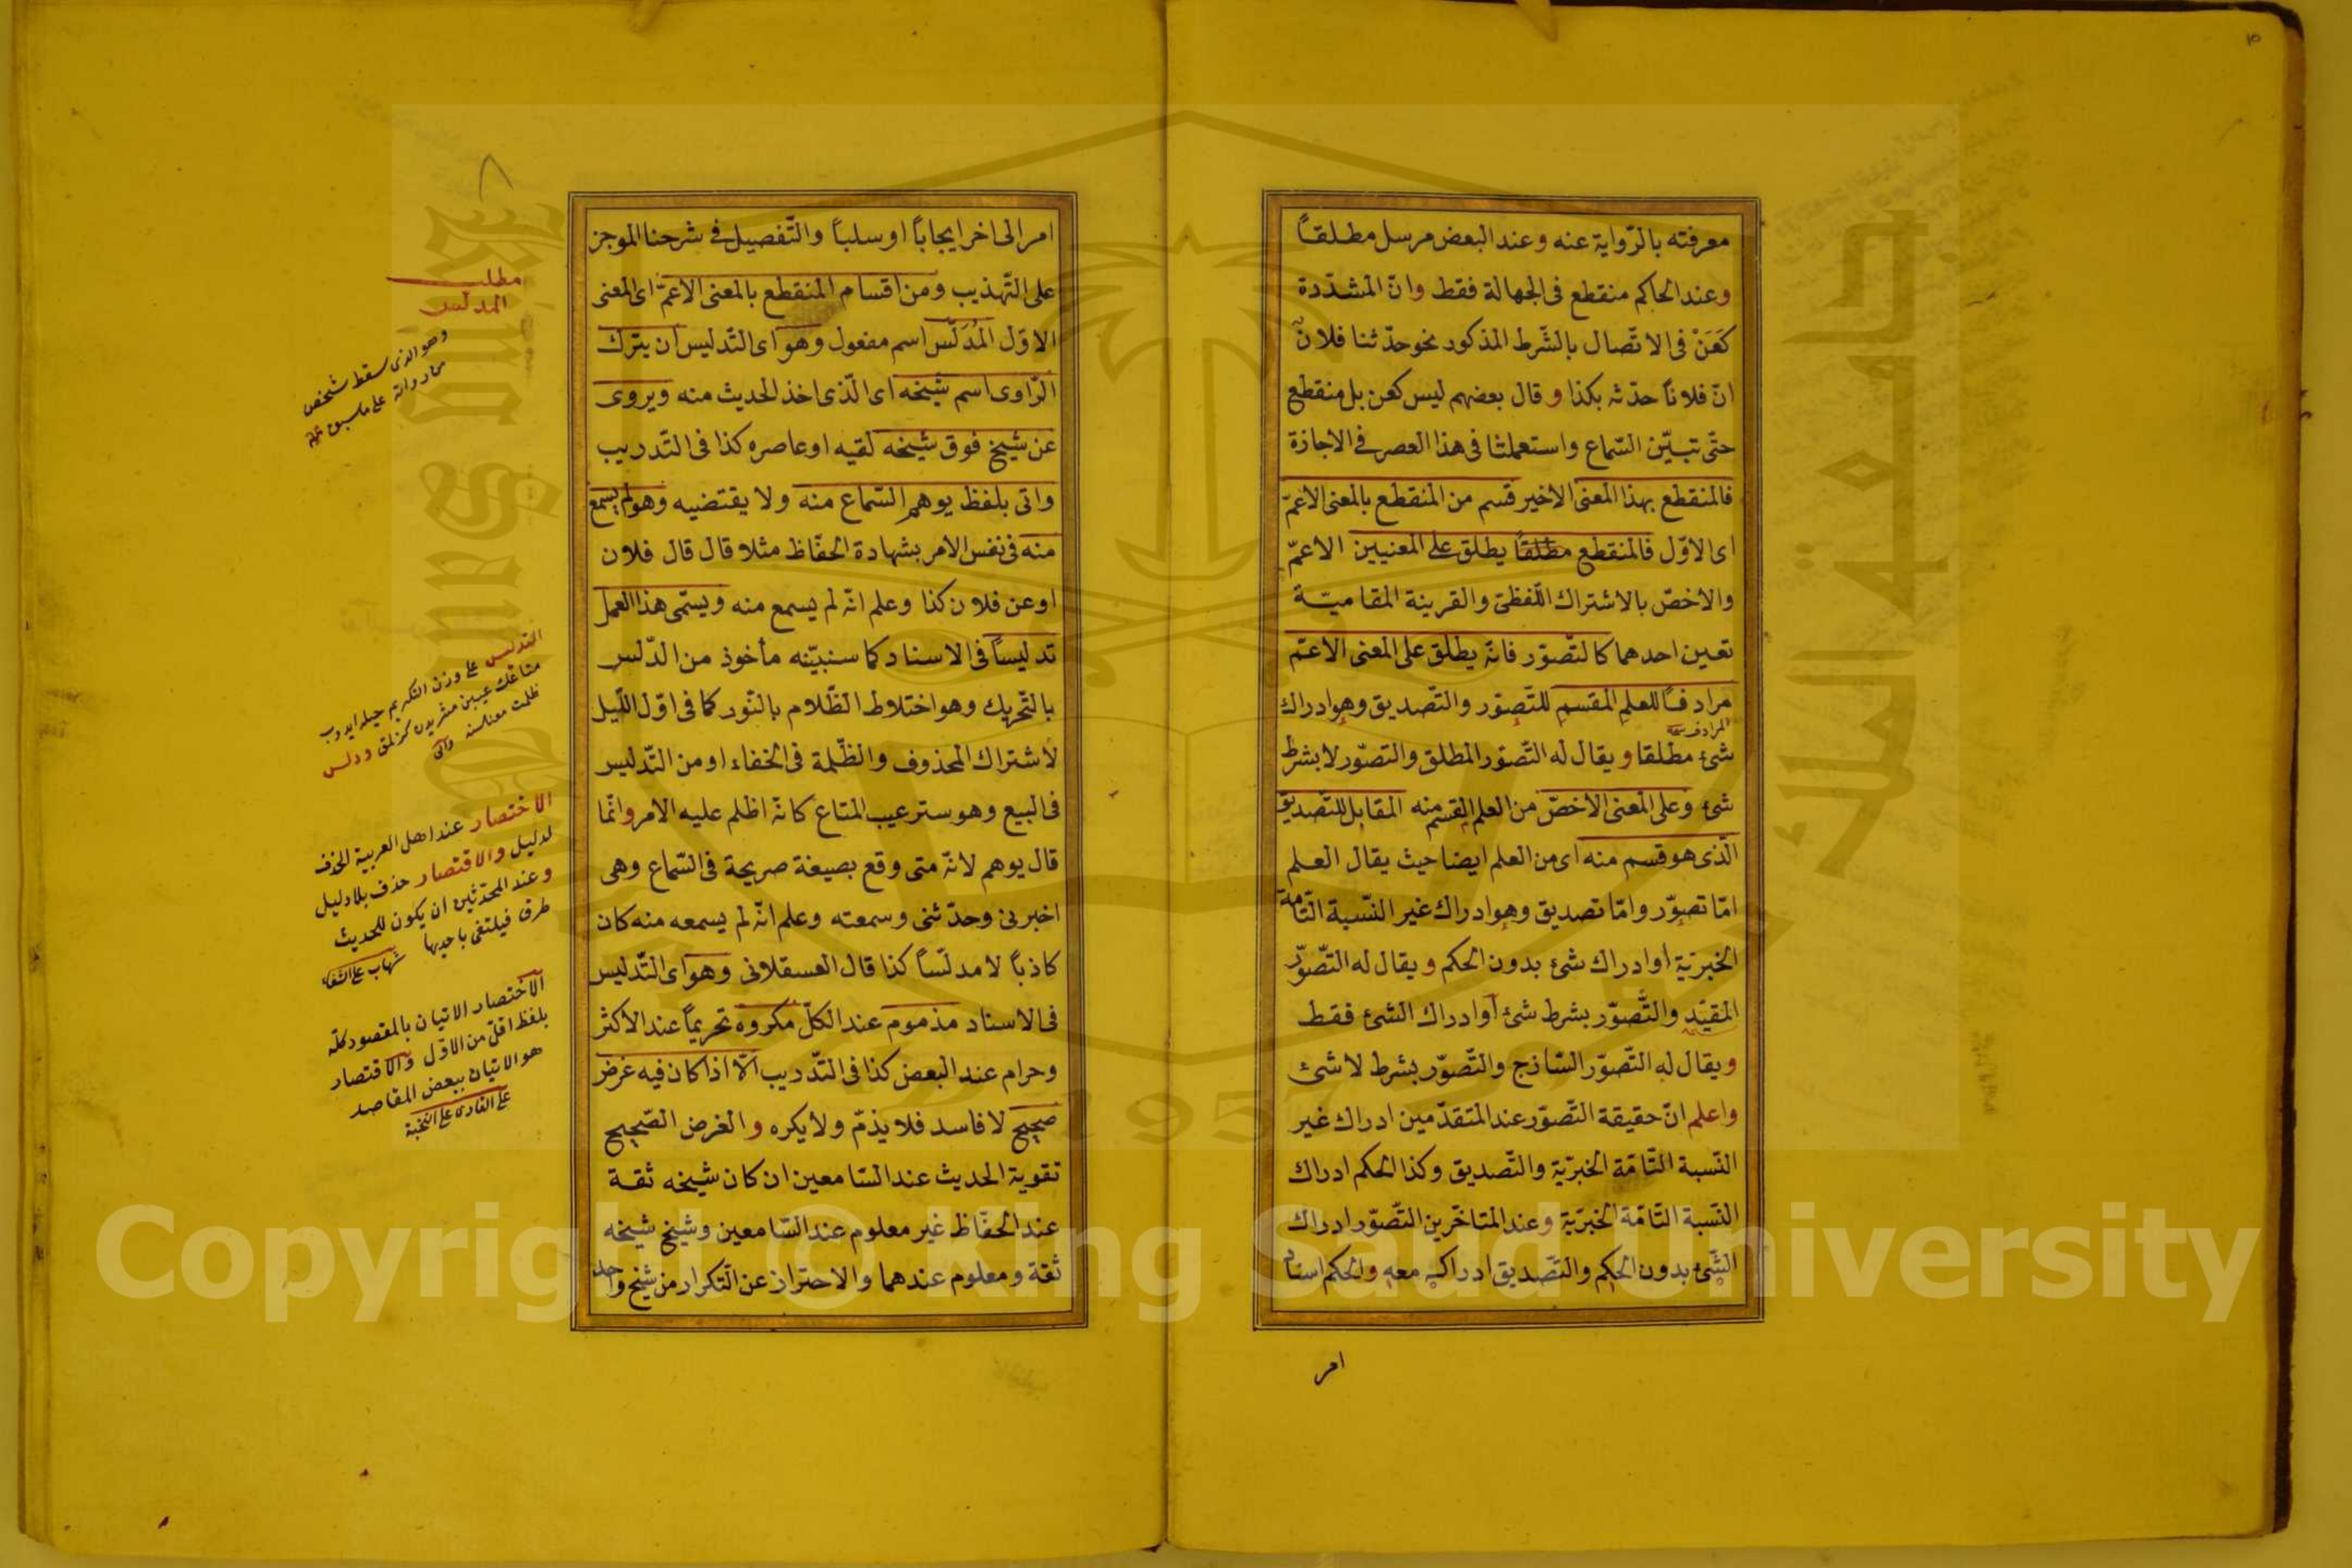 ١٥
معرفته بالرّواية عنه وعند البعض مرسل مطلقاً
وعند الحاكم منقطع فى الجهالة فقط وانّ المشدّدة
كَعَنْ فى الاتّصال بالشّرط المذكور نحو حدّثنا فلان
انّ فلاناً حدّثه بكذا وقال بعضهم ليس كعن بل منقطع
حتّى تبيّن السّماع واستعملتا فى هذا العصر فى الاجازة
فالمنقطع بهذا المعنى الاخير قسم من المنقطع بالمعنى الاعمّ
اى الاوّل فالمنقطع مطلقاً يطلق على المعنيين الاعمّ
والاخصّ بالاشتراك اللّفظىّ والقرينة المقاميّة
تعين احدهما كالتّصوّر فانّه يطلق على المعنى الاعمّ
مرادفاً للعلم المقسم للتّصوّر والتّصديق وهو ادراك
المرادف
شئ مطلقا ويقال له التّصوّر المطلق والتصوّر لا بشرط
شئ وعلى المعنى الاخصّ من العلم القسم منه المقابل للتّصديق
الّذى هو قسم منه اى من العلم ايضا حيث يقال العلم
امّا تصوّر وامّا تصديق وهو ادراك غير النّسبة التّامّة
الخبريّة او ادراك شئ بدون الحكم ويقال له التّصوّر
المقيّد والتّصوّر بشرط شئ او ادراك الشئ فقط
ويقال له التّصوّر السّاذج والتّصوّر بشرط لا شئ
واعلم انّ حقيقة التّصوّر عند المتقدّمين ادراك غير
النّسبة التّامّة الخبريّة والتّصديق وكذا الحكم ادراك
النّسبة التّامّة الخبريّة وعند المتاخّرين التّصوّر ادراك
الشّئ بدون الحكم والتّصديق ادراكه معه والحكم اسناد
امر
امر الى اخر ايجاباً او سلباً والتّفصيل فى شرحنا الموجز
على التّهذيب ومن اقسام المنقطع بالمعنى الاعمّ اى المعنى
الاوّل المُدَلَّس اسم مفعول وهو اى التّدليس ان يترك
الرّاوى اسم شيخه اى الّذى اخذ الحديث منه ويروى
عن شيخ فوق شيخه لقيه او عاصره كذا فى التّدريب
واتى بلفظ يوهم السّماع منه ولا يقتضيه وهو لم يسمع
منه فى نفس الامر بشهادة الحفّاظ مثلا قال قال فلان
او عن فلان كذا وعلم انّه لم يسمع منه ويسمّى هذا العمل
تدليساً فى الاسناد كما سنبيّنه مأخوذ من الدّلس
بالتّحريك وهو اختلاط الظّلام بالنّور كما فى اوّل اللّيل
لاشتراك المحذوف والظّلمة فى الخفاء او من التّدليس
فى البيع وهو ستر عيب المتاع كانّه اظلم عليه الامر وانّما
قال يوهم لانّه متى وقع بصيغة صريحة فى السّماع وهى
اخبرنى وحدّثنى وسمعته وعلم انّه لم يسمعه منه كان
كاذباً لا مدلّساً كذا قال العسقلانى وهو اى التّدليس
فى الاسناد مذموم عند الكلّ مكروه تحريماً عند الاكثر
وحرام عند البعض كذا فى التّدريب الّا اذا كان فيه غرض
صحيح لا فاسد فلا يذمّ ولا يكره والغرض الصّحيح
تقوية الحديث عند السّامعين ان كان شيخه ثقة
عند الحفّاظ غير معلوم عند السّامعين وشيخ شيخه
ثقة ومعلوم عندهما والاحتراز عن التّكرار من شيخ واحد
مطلب
المدلّس
وهو الذى سقط شخص
من رواته على ما سبق
التدليس على وزن التكريم حيله ايدوب
متاعك عيبين مشتريدن كزلمك ودلس
ظلمت معناسنه
الاختصار عند اهل العربية الحذف
لدليل والاقتصار حذف بلا دليل
وعند المحدّثين ان يكون للحديث
طرق فيكتفى باحديها شهاب على الشفا
الاختصار الاتيان بالمقصود كلّه
بلفظ اقلّ من الاوّل والاقتصار
هو الاتيان ببعض المقاصد
على القارى على النخبة
جامعة الملك سعود
King Saud University
1957
Copyright © King Saud University